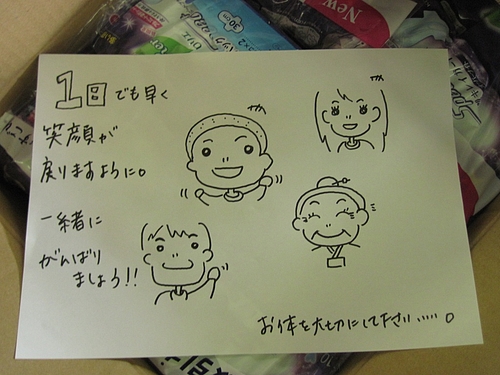 New
30cm
1回でも早く
笑顔が
戻りますように。
一緒に
がんばり
ましょう!!
お体を大切にして下さい……。